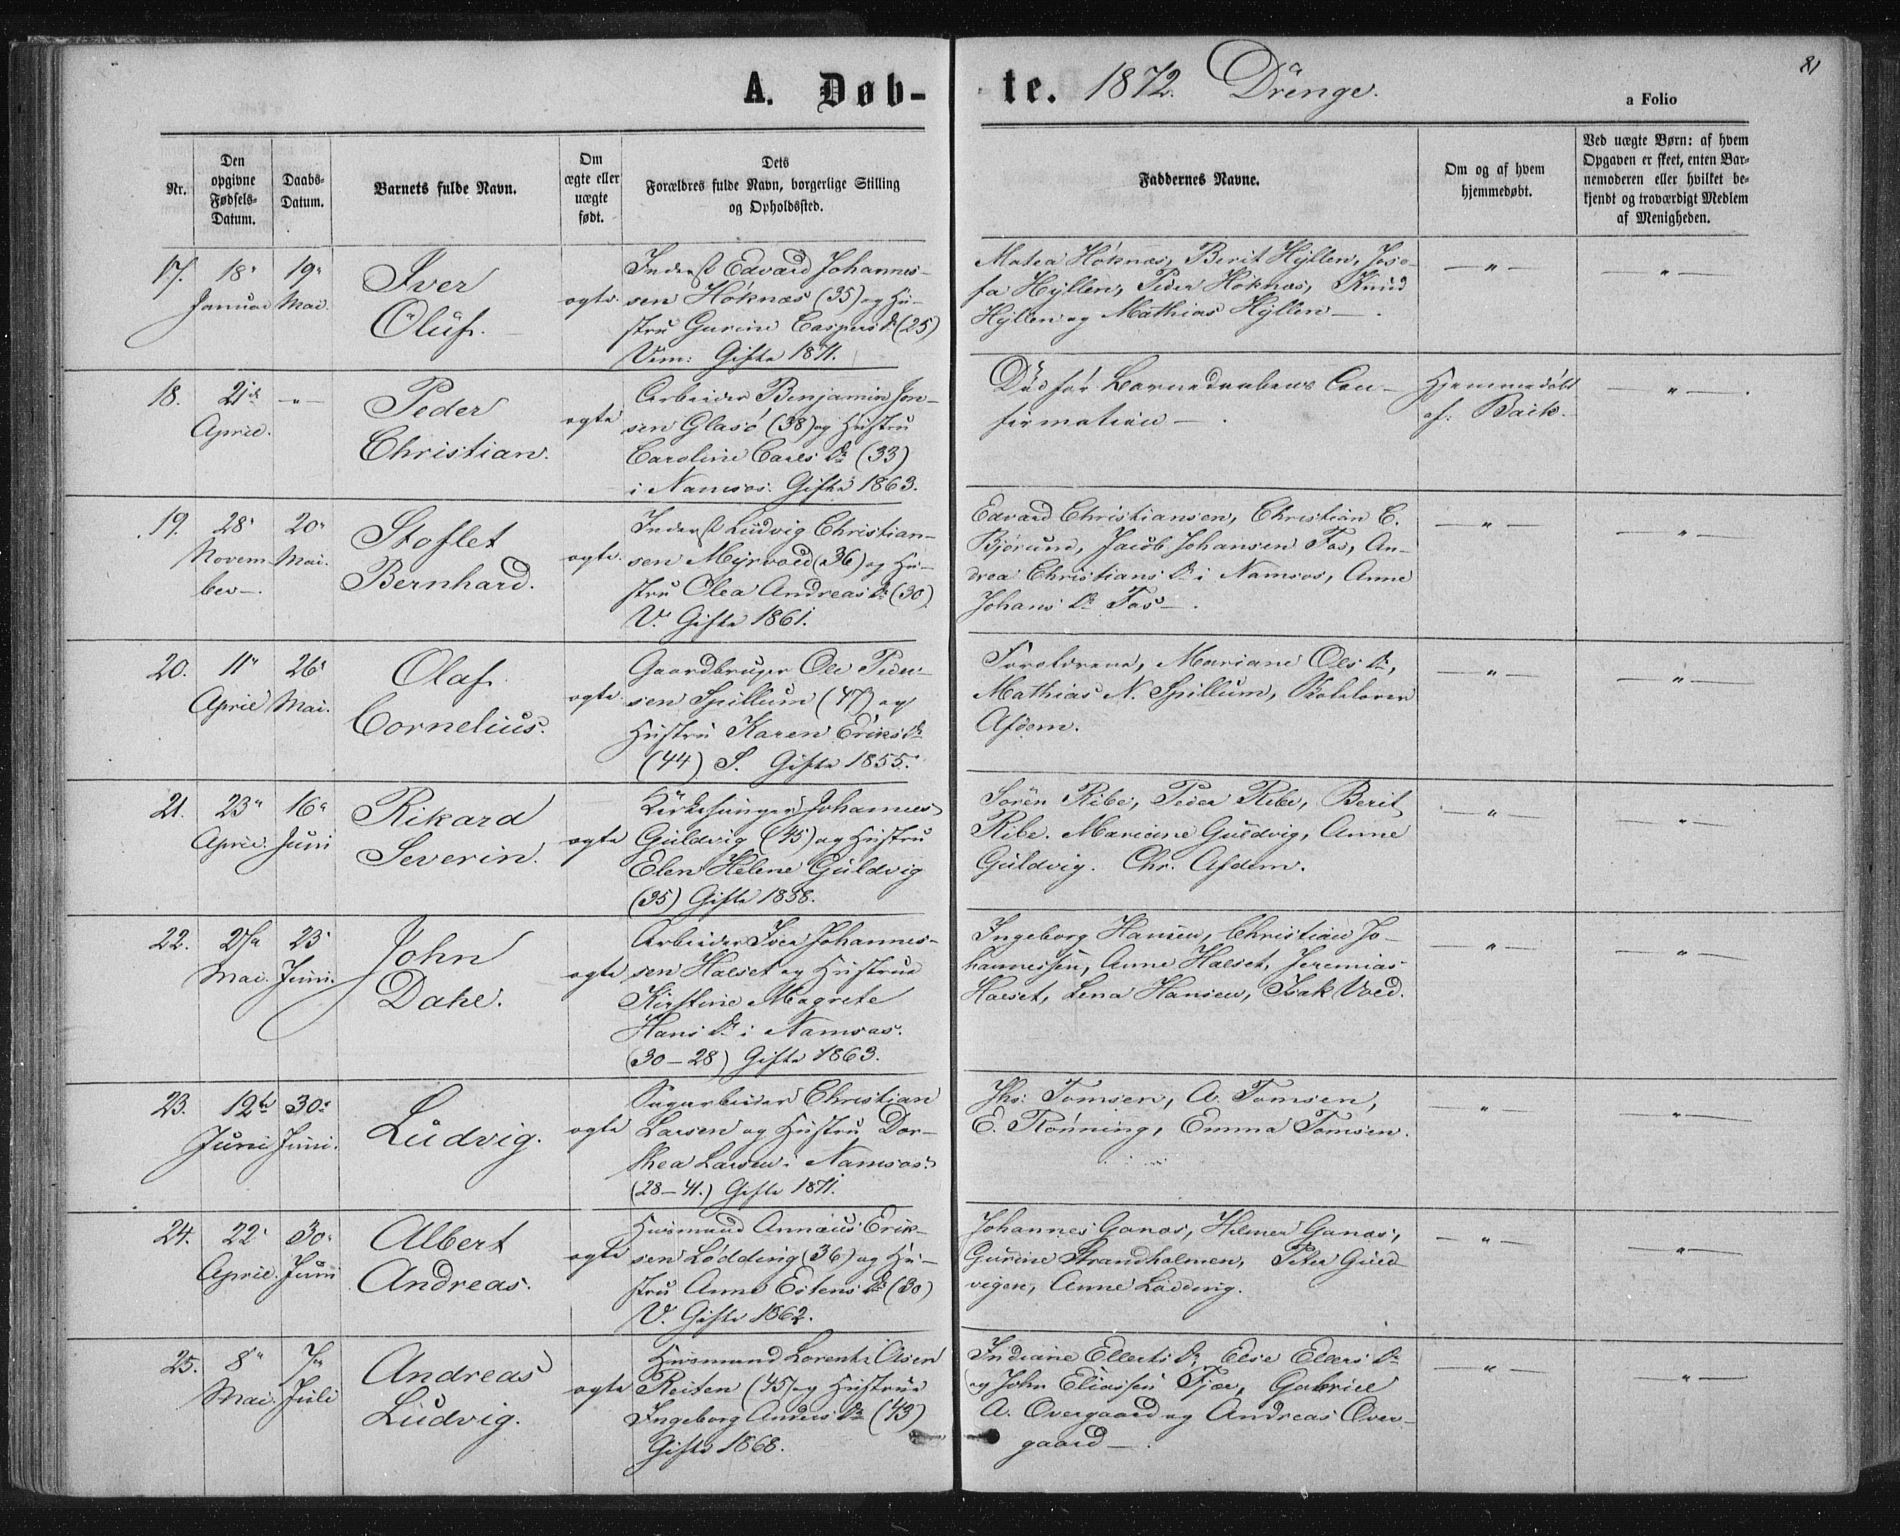 81
A. Døb-
te. 1872. Drenge.
a Folio
Nr.
Den opgivne Fødsels-Datum.
Daabs-Datum.
Barnets fulde Navn.
Om ægte eller uægte født.
Dets Forældres fulde Navn, borgerlige Stilling og Opholdssted.
Faddernes Navne.
Om og af hvem hjemmedøbt.
Ved uægte Børn: af hvem Opgaven er skeet, enten Barnemoderen eller hvilket bekjendt og troværdigt Medlem af Menigheden.
17. 18 Januar 19 Mai.
Iver
Oluf.
ægte.
Inderst Edvard Johannes-
sen Høknæs (35) og Hu-
stru Gurine Caspersdr (25)
Vem: Gifte 1871.
Matea Høknæs, Berit Hyllen, Jose-
fa Hyllen, Peder Høknæs, Knud
Hyllen og Mathias Hyllen —
— " —
— " —
18. 21de April. — " —
Peder
Christian.
ægte
Arbeider Benjamin Jon-
sen Glasø (38) og Hustru
Caroline Carls Dr (33)
i Namsos. Gifte 1863.
Død før Barnedaabens Con-
firmation —
Hjemmedøbt
af: Baik.
— " —
19. 28 Novem-
ber —. 20 Mai.
Stoflet
Bernhard.
ægte.
Inderst Ludvig Christian-
sen Myrvold (36) og Hu-
stru Olea Andreas Dr (30)
V. Gifte 1861.
Edvard Christiansen, Christian C.
Bjørum, Jacob Johansen Fos, An-
drea Christians Dr i Namsos, Anne
Johans Dr Fos —.
— " —
— " —
20. 11 April 26 Mai.
Olaf
Cornelius.
ægte
Gaardbruger Ole Peder-
sen Spillum (47) og
Hustru Karen Eriks Dr
(44) S. Gifte 1855.
Forældrene, Mariane Ols Dr,
Mathias N. Spillum, Skolelærer
Afdem.
— " —
— " —
21. 23 April. 16 Juni
Rikard
Severin.
ægte
Kirkesanger Johannes
Guldvig (45) og Hustru
Elen Helene Guldvig
(35) Gifte 1858.
Søren Ribe, Peder Ribe, Berit
Ribe. Mariane Guldvig, Anne
Guldvig. Chr. Afdem.
— " —
— " —
22. Mai. 23 Juni.
John
Dahl.
ægte
Arbeider Iver Johannes-
sen Halset og Hustrue
Kirstine Magrete
Hans Dr i Namsos.
(30 – 28) Gifte 1863.
Ingeborg Hansen, Christian Jo-
hannessen, Anne Halset, Jeremias
Halset, Lena Hansen, Isak Vold.
— " —
— " —
23. 12te Juni 30 Juni.
Ludvig.
ægte
Sagarbeider Christian
Larsen og Hustru Dor-
thea Larsen i Namsos.
(28 – 41.) Gifte 1871.
Jhs: Tomsen, A. Tomsen,
E. Rønning, Emma Tomsen.
— " —
— " —
24. 22 April. 30 Juni
Albert
Andreas.
ægte
Husmand Annæus Erik-
sen Lødding (36) og Hu-
stru Anne Estens Dr (30)
V. Gifte 1862.
Johannes Ganas, Helmer Ganas,
Gurine Strandholmen, Peter Guld-
vigen, Anne Lødding.
— " —
— " —
25. 8 Mai. 7 Juli
Andreas
Ludvig.
ægte
Husmand Lorents Olsen
Reiten (45) og Hustrue
Ingeborg Anders Dr (43)
Gifte 1868.
Indiane Ellerts Dr, Else Ellers Dr
og John Eliassen Fjær, Gabriel
A. Overgaard og Andreas Over-
gaard —.
— " —
— " —